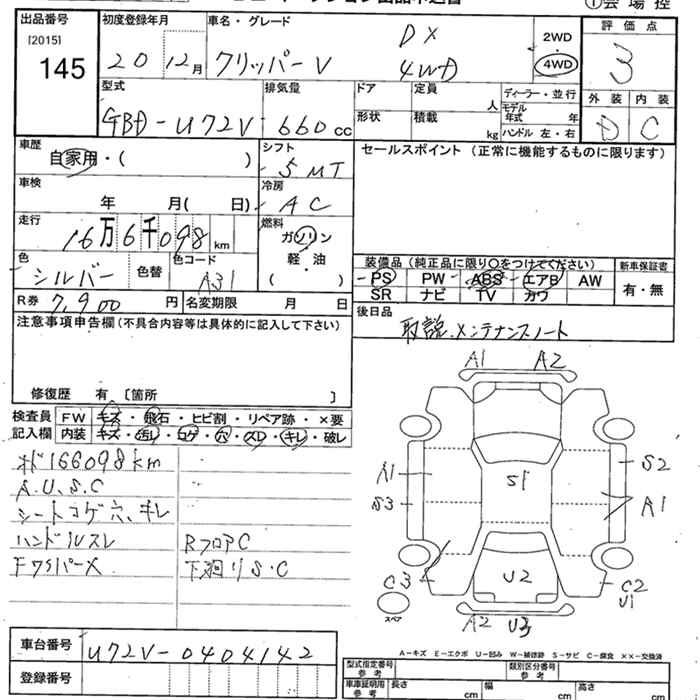 出品番号 初度登録年月 車名・グレード 2WD ①会場控
[2015] 20 12月 クリッパーV DX 4WD 4WD 評価点
145 3
型式 排気量 ドア 定員 人 ディーラー・並行 外装 内装
GBD-U72V 660cc 形状 積載 kg モデル年式 年 D C
ハンドル 左・右
車歴 シフト セールスポイント (正常に機能するものに限ります)
自家用・( ) 5MT
車検 冷房
年 月( 日) AC
走行 燃料
16万6千098km ガソリン
色 色替 色コード 軽・油
シルバー A31 ( )
装備品 (純正品に限り〇をつけてください) 新車保証書
PS PW ABS エアB AW 有・無
SR ナビ TV カワ
R券 7,900円 名変期限 月 日
後日品 取説.メンテナンスノート
注意事項申告欄(不具合内容等は具体的に記入して下さい)
修復歴 有 [箇所 ]
検査員 FW キズ・飛石・ヒビ割・リペア跡・×要
記入欄 内装 キズ・汚レ・コゲ・穴・スレ・キレ・破レ
オド166098km
A.U.S.C
シートコゲ穴、キレ
ハンドルスレ RフロアC
Fワイパー× 下廻りS・C
A1 A2
A1 S1 S2
S3 A1
C3 U2 C2
U1
スペア A2 U3
A-キズ E-エクボ U-凹み W-補修跡 S-サビ C-腐食 ××-交換済
車台番号 U72V-0404142
登録番号
型式指定番号 参考 類別区分番号 参考
車庫証明用 参考 長さ cm 幅 cm 高さ cm